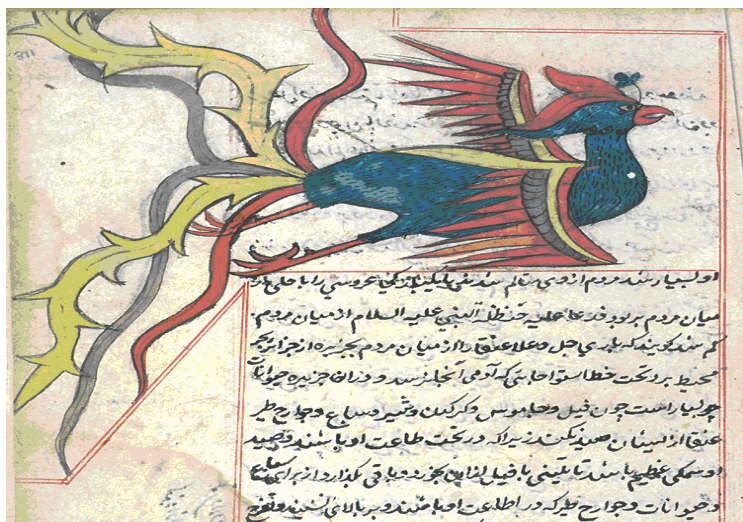 او بسیار شد مردم ازوی متالم شدند تا یکبار عروسی را با حلی از
میان مردم بربود فدعا علیه حنظلة النبی علیه السلام از میان مردم
کم شد کویند که باری جل وعلا عنقا را از میان مردم بجزیره از جزایر بحر
محیط برد تحت خط استوا جایی که آدمی آنجا نرسد و در آن جزیره حیوانات
بسیار است چون فیل و جاموس و کرکدن و شیر و سباع و جوارح طیر
عنقا از ایشان صید نکند زیرا که در تحت طاعت او باشند و صید
او سمکی عظیم باشد تا یا تنینی یا فیل ازان بخورد و باقی بگذارد از برای سباع
و حیوانات و جوارح طیر که در اطاعت او باشند و بر بالای نشیند و تفرج